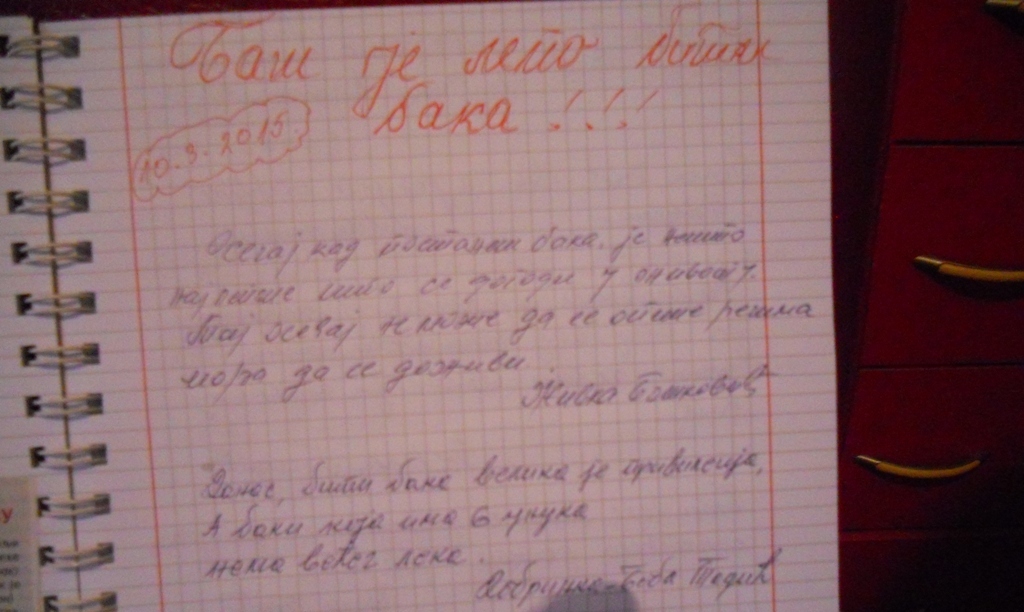 Баш је лепо бити
бака!!!
10.3.2015.
Осећај кад постанеш бака је нешто
најлепше што се догоди у животу.
Тај осећај не може да се опише речима
мора да се доживи.
Живка Бошковић
Данас, бити бака велика је привилегија,
А баки која има 6 унука
нема већег лека.
Добринка-Беба Тадић